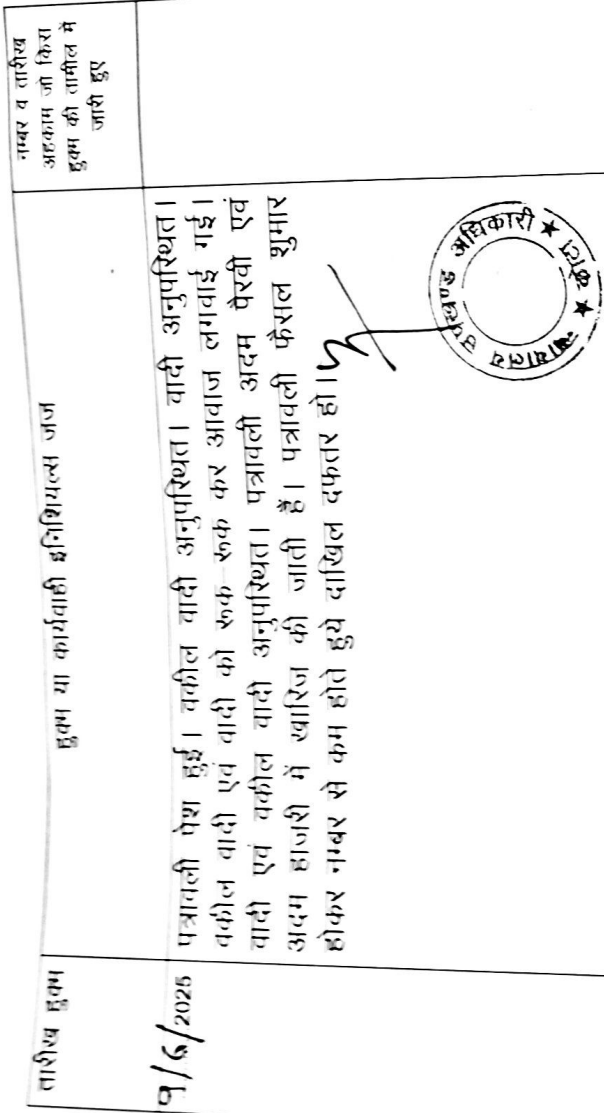 तारीख हुक्म
हुक्म या कार्यवाही इनिशियल्स जज
नम्बर व तारीख
अहकाम जो किस
हुक्म की तामील में
जारी हुए
9/6/2025
पत्रावली पेश हुई। वकील वादी अनुपस्थित। वादी अनुपस्थित।
वकील वादी एवं वादी को रूक–रूक कर आवाज लगवाई गई।
वादी एवं वकील वादी अनुपस्थित। पत्रावली अदम पैरवी एवं
अदम हाजरी में खारिज की जाती हैं। पत्रावली फैसल शुमार
होकर नम्बर से कम होते हुये दाखिल दफतर हो।
न्यायालय उपखण्ड अधिकारी